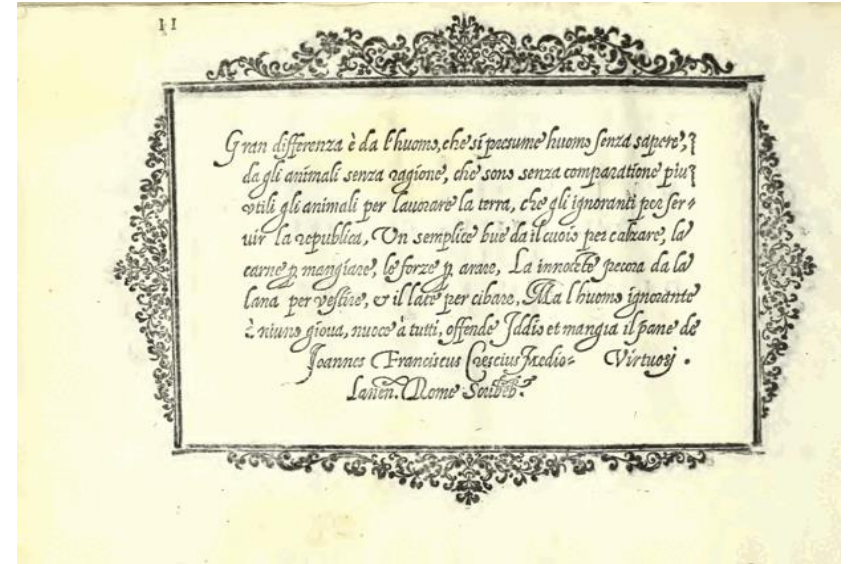 11
Gran differenza è da l'huomo, che si presume huomo senza sapere,
da gli animali senza ragione, che sono senza comparatione piu
utili gli animali per lavorare la terra, che gli ignoranti per ser-
vir la republica, Un semplice bue da il cuoio per calzare, la
carne p mangiare, le forze p arare, La innocēte pecora da la
lana per vestire, & il late per cibare, Ma l huomo ignorante
à niuno giova, nuoce à tutti, offende Iddio et mangia il pane de
Joannes Franciscus Crescius Medio= Virtuosi.
Lanen. Rome Scribeb.